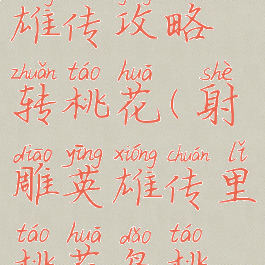 雄传攻略
zhuǎn táo huā shè
转桃花(射
diāo yīng xióng chuán lǐ
雕英雄传里
táo huā dǎo táo
桃花岛桃